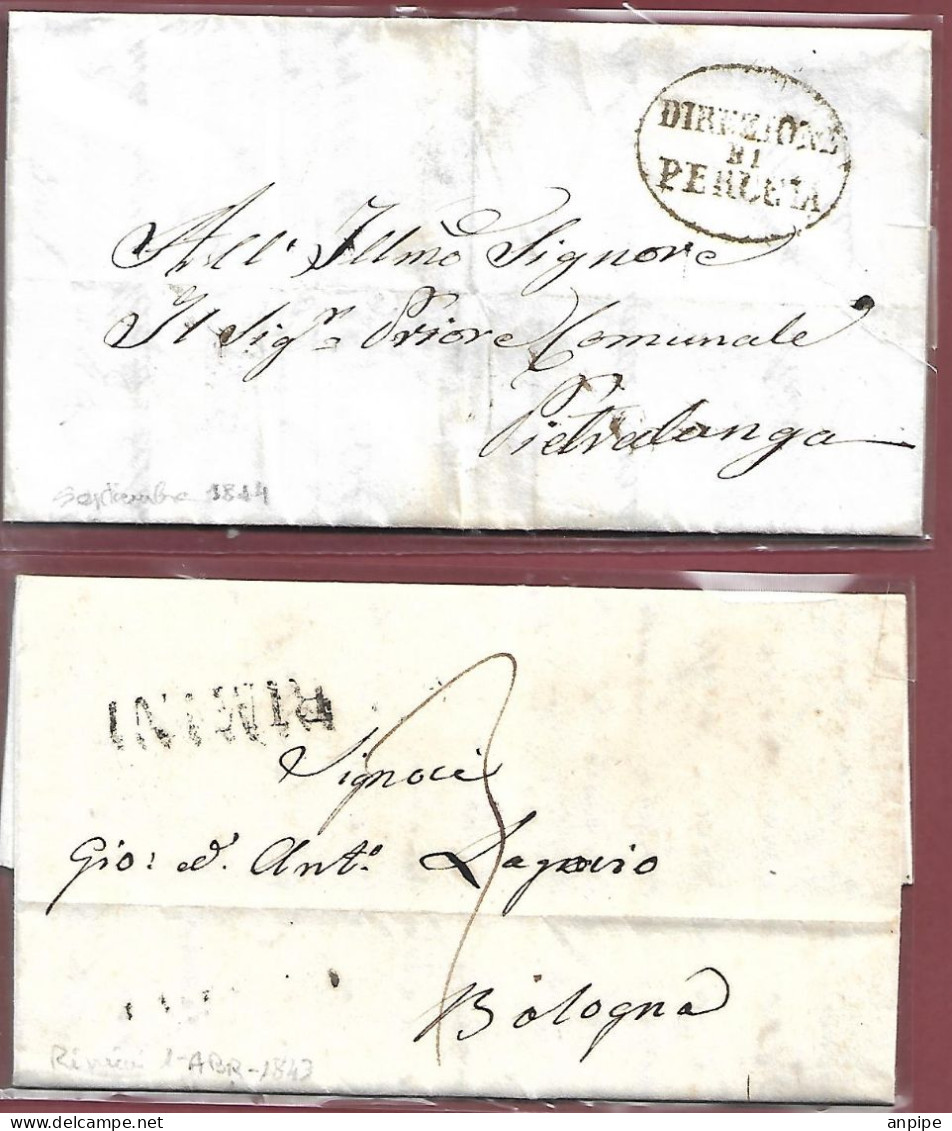 DIREZIONE
DI
PERUGIA
All' Illmo Signore
Il Sigr. Priore Comunale
Pietralonga
Septiembre 1844
RIMINI
3
Signori
Gio: d. Anto.
Bologna
Rimini 1-ABR-1843
anpipe